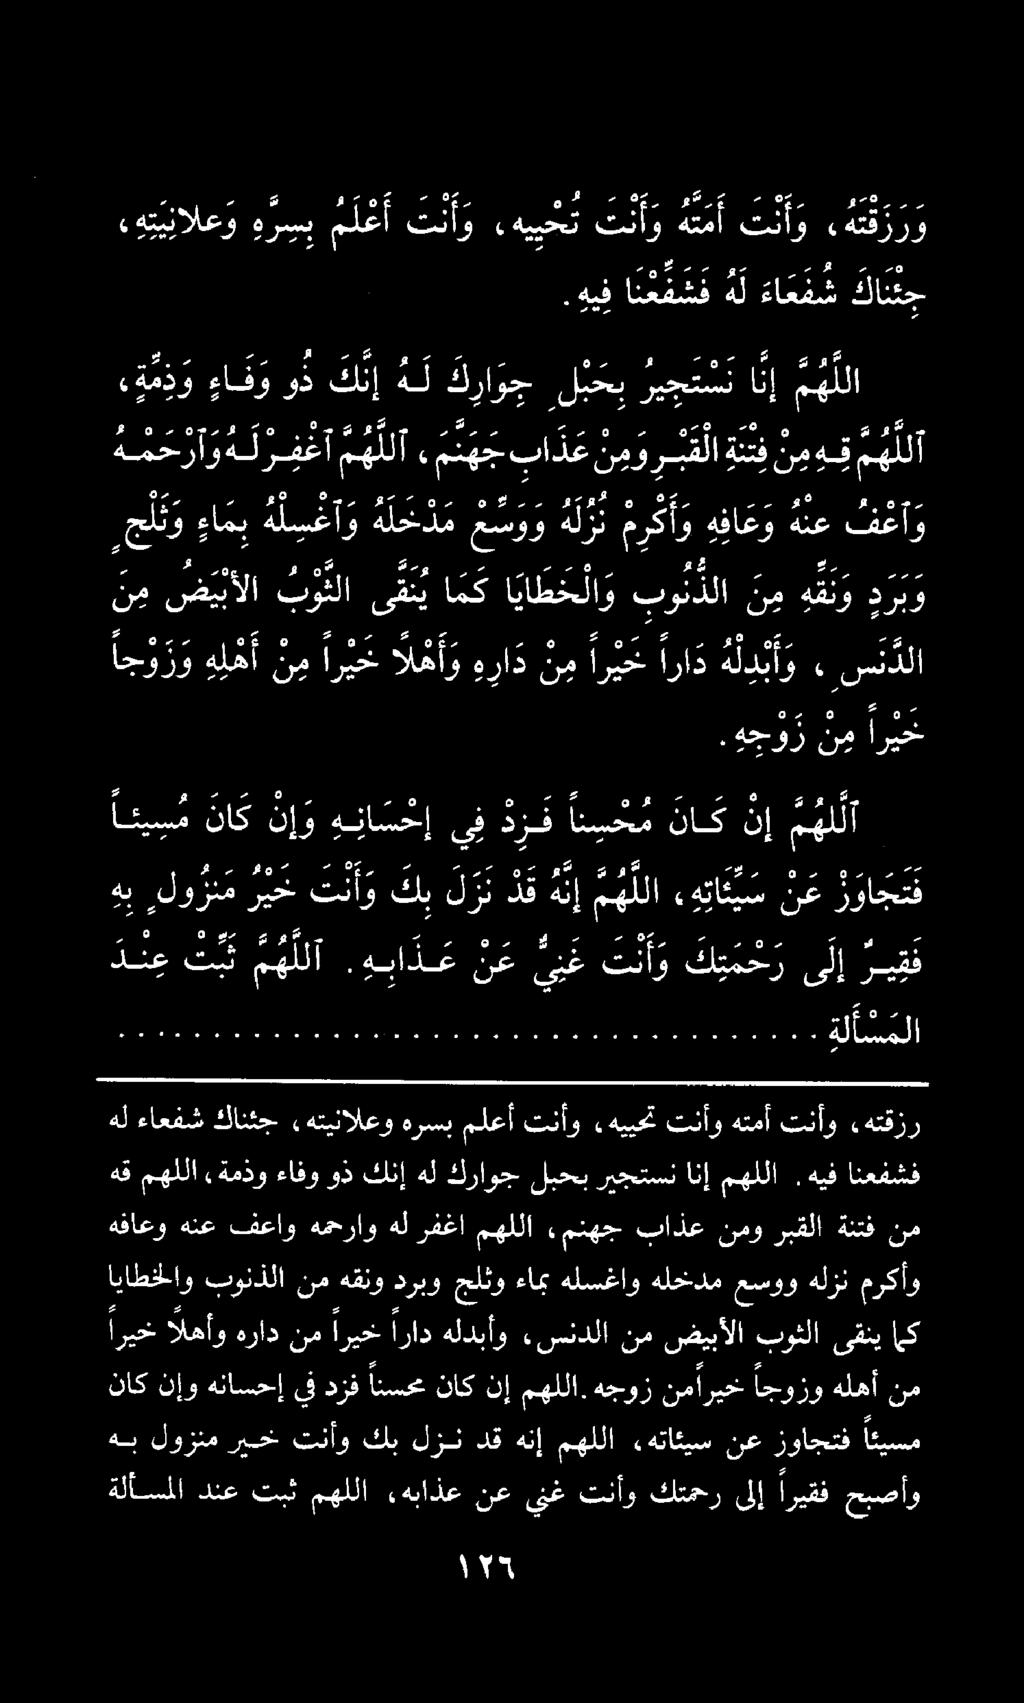 وَرَزَقْتَهُ، وَأَنْتَ أَمَتَّهُ وَأَنْتَ تُحْيِيهِ، وَأَنْتَ أَعْلَمُ بِسِرِّهِ وَعلانِيَتِهِ،
جِئْنَاكَ شُفَعَاءَ لَهُ فَشَفِّعْنَا فِيهِ.
اللَّهُمَّ إِنَّا نَسْتَجِيرُ بِحَبْلِ جِوَارِكَ لَـهُ إِنَّكَ ذُو وَفَـاءٍ وَذِمَّةٍ،
آللَّهُمَّ قِـهِ مِنْ فِتْنَةِ الْقَبْـرِ وَمِنْ عَذَابِ جَهَنَّمَ، آللَّهُمَّ آغْفِـرْ لَـهُ وَآرْحَمْـهُ
وَآعْفُ عَنهُ وَعَافِهِ وَأَكْرِمْ نُزُلَهُ وَوَسِّعْ مَدْخَلَهُ وَآغْسِلْهُ بِمَاءٍ وَثَلْجٍ
وَبَرَدٍ وَنَقِّهِ مِنَ الذُّنُوبِ وَالْخَطَايَا كَمَا يُنَقَّى الثَّوْبُ الأَبْيَضُ مِنَ
الدَّنَسِ، وَأَبْدِلْهُ دَاراً خَيْراً مِنْ دَارِهِ وَأَهْلاً خَيْراً مِنْ أَهْلِهِ وَزَوْجاً
خَيْراً مِنْ زَوْجِهِ.
آللَّهُمَّ إِنْ كَـانَ مُحْسِناً فَـزِدْ فِي إِحْسَانِـهِ وَإِنْ كَانَ مُسِيئـاً
فَتَجَاوَزْ عَنْ سَيِّئَاتِهِ، اللَّهُمَّ إِنَّهُ قَدْ نَزَلَ بِكَ وَأَنْتَ خَيْرُ مَنزُولٍ بِهِ
فَقِيـرٌ إِلَى رَحْمَتِكَ وَأَنْتَ غَنِيٌّ عَنْ عَـذَابِـهِ. آللَّهُمَّ ثَبِّتْ عِنْـدَ
المَسْأَلَةِ ................................
رزقته، وأنت أمته وأنت تحييه، وأنت أعلم بسره وعلانيته، جئناك شفعاء له
فشفعنا فيه. اللهم إنا نستجير بحبل جوارك له إنك ذو وفاء وذمة، اللهم قه
من فتنة القبر ومن عذاب جهنم، اللهم اغفر له وارحمه واعف عنه وعافه
وأكرم نزله ووسع مدخله واغسله بماء وثلج وبرد ونقه من الذنوب والخطايا
كما ينقى الثوب الأبيض من الدنس، وأبدله داراً خيراً من داره وأهلاً خيراً
من أهله وزوجاً خيراً من زوجه. اللهم إن كان محسناً فزد في إحسانه وإن كان
مسيئاً فتجاوز عن سيئاته، اللهم إنه قد نـزل بك وأنت خـير منزول بـه
وأصبح فقيراً إلى رحمتك وأنت غني عن عذابه، اللهم ثبت عند المسألة
١٢٦